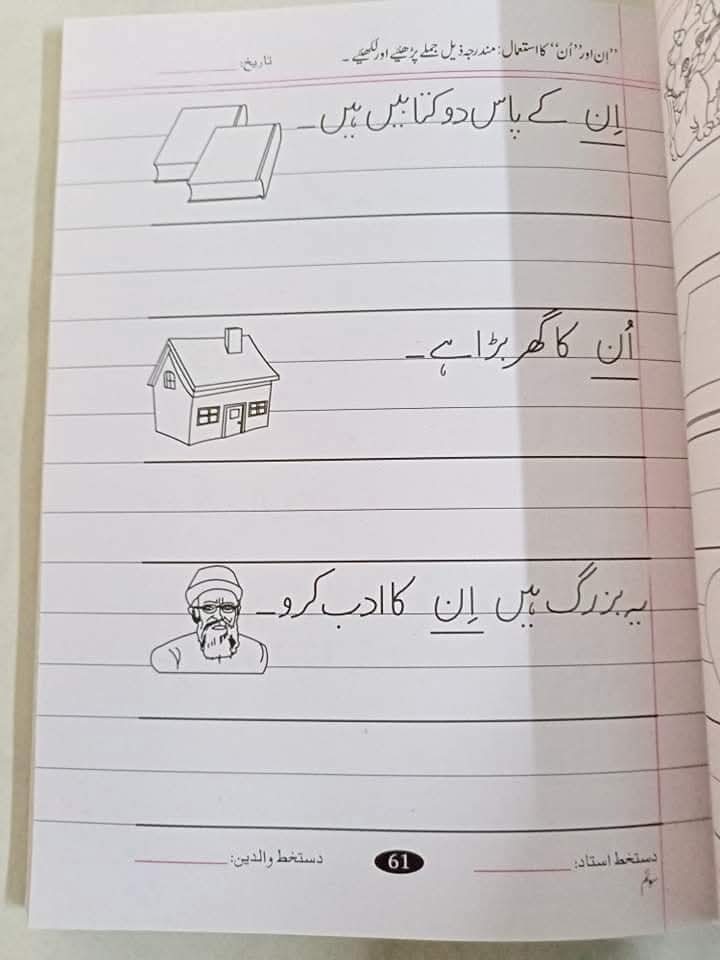 ”اِن اور ”اُن“ کا استعمال: مندرجہ ذیل جملے پڑھئیے اور لکھئیے ۔
تاریخ:
اِن کے پاس دو کتابیں ہیں ۔
اُن کا گھر بڑا ہے ۔
یہ بزرگ ہیں اِن کا ادب کرو ۔
دستخط استاد:
61
دستخط والدین: